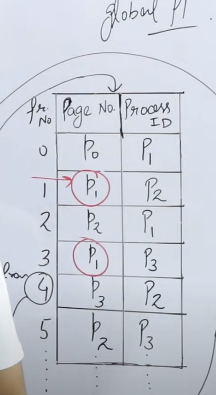 global PT
fr. No Page No. Process ID
0 P₀ P₁
1 P₁ P₂
2 P₂ P₁
3 P₁ P₃
4 P₃ P₂
5 P₂ P₃